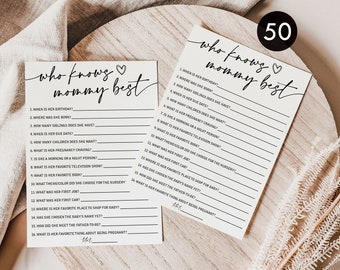 50
who knows
mommy best
1. WHEN IS HER BIRTHDAY?
2. WHERE WAS SHE BORN?
3. HOW MANY SIBLINGS DOES SHE HAVE?
4. WHEN IS HER DUE DATE?
5. HOW MANY CHILDREN DOES SHE WANT?
6. WHAT IS HER PREGNANCY CRAVING?
7. IS SHE A MORNING OR A NIGHT PERSON?
8. WHAT IS HER FAVORITE TELEVISION SHOW?
9. WHAT IS HER FAVORITE BAND?
10. WHAT THEME/COLOR DID SHE CHOOSE FOR THE NURSERY?
11. WHAT WAS HER FIRST JOB?
12. WHAT WAS HER FIRST CAR?
13. WHERE IS HER FAVORITE PLACE TO SHOP FOR BABY?
14. HAS SHE CHOSEN THE BABY'S NAME YET?
15. HOW DID SHE MEET THE FATHER-TO-BE?
16. WHAT IS HER FAVORITE THING ABOUT BEING PREGNANT?
who knows
mommy best
1. WHEN IS HER BIRTHDAY?
2. WHERE WAS SHE BORN?
3. HOW MANY SIBLINGS DOES SHE HAVE?
4. WHEN IS HER DUE DATE?
5. HOW MANY CHILDREN DOES SHE WANT?
6. WHAT IS HER PREGNANCY CRAVING?
7. IS SHE A MORNING OR A NIGHT PERSON?
8. WHAT IS HER FAVORITE TELEVISION SHOW?
9. WHAT IS HER FAVORITE BAND?
10. WHAT THEME/COLOR DID SHE CHOOSE FOR THE NURSERY?
11. WHAT WAS HER FIRST JOB?
12. WHAT WAS HER FIRST CAR?
13. WHERE IS HER FAVORITE PLACE TO SHOP FOR BABY?
14. HAS SHE CHOSEN THE BABY'S NAME YET?
15. HOW DID SHE MEET THE FATHER-TO-BE?
16. WHAT IS HER FAVORITE THING ABOUT BEING PREGNANT?